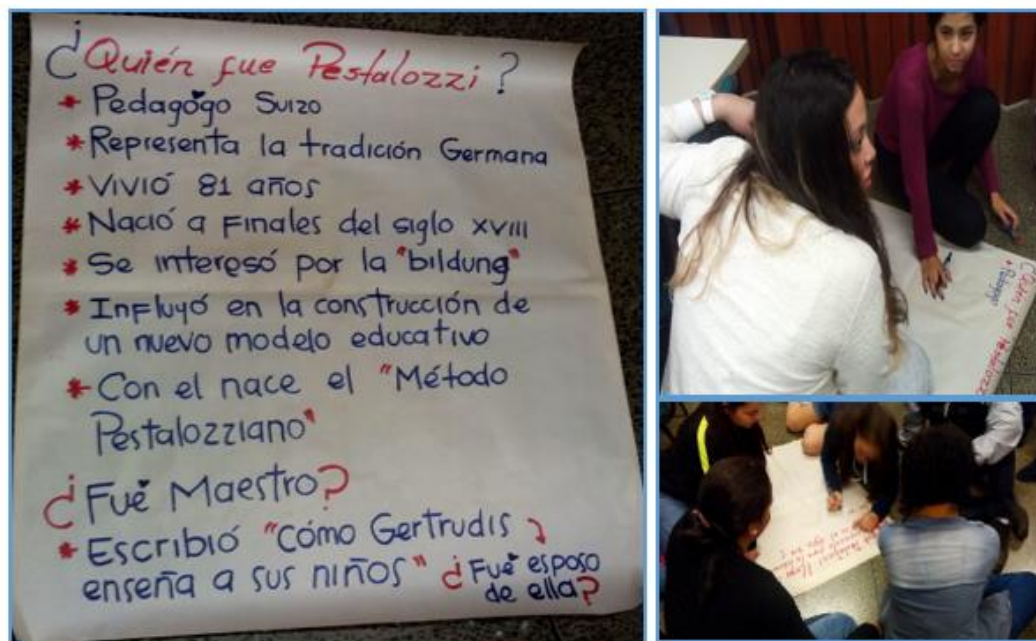 ¿Quién fue Pestalozzi?
* Pedagógo Suizo
* Representa la tradición Germana
* Vivió 81 años
* Nació a Finales del siglo XVIII
* Se interesó por la "bildung"
* Influyó en la construcción de
un nuevo modelo educativo
* Con el nace el "Método
Pestalozziano"
¿Fué Maestro?
* Escribió "Cómo Gertrudis
enseña a sus niños" ¿Fué esposo
de ella?
¿Quién fue Pestalozzi
* Pedagógo